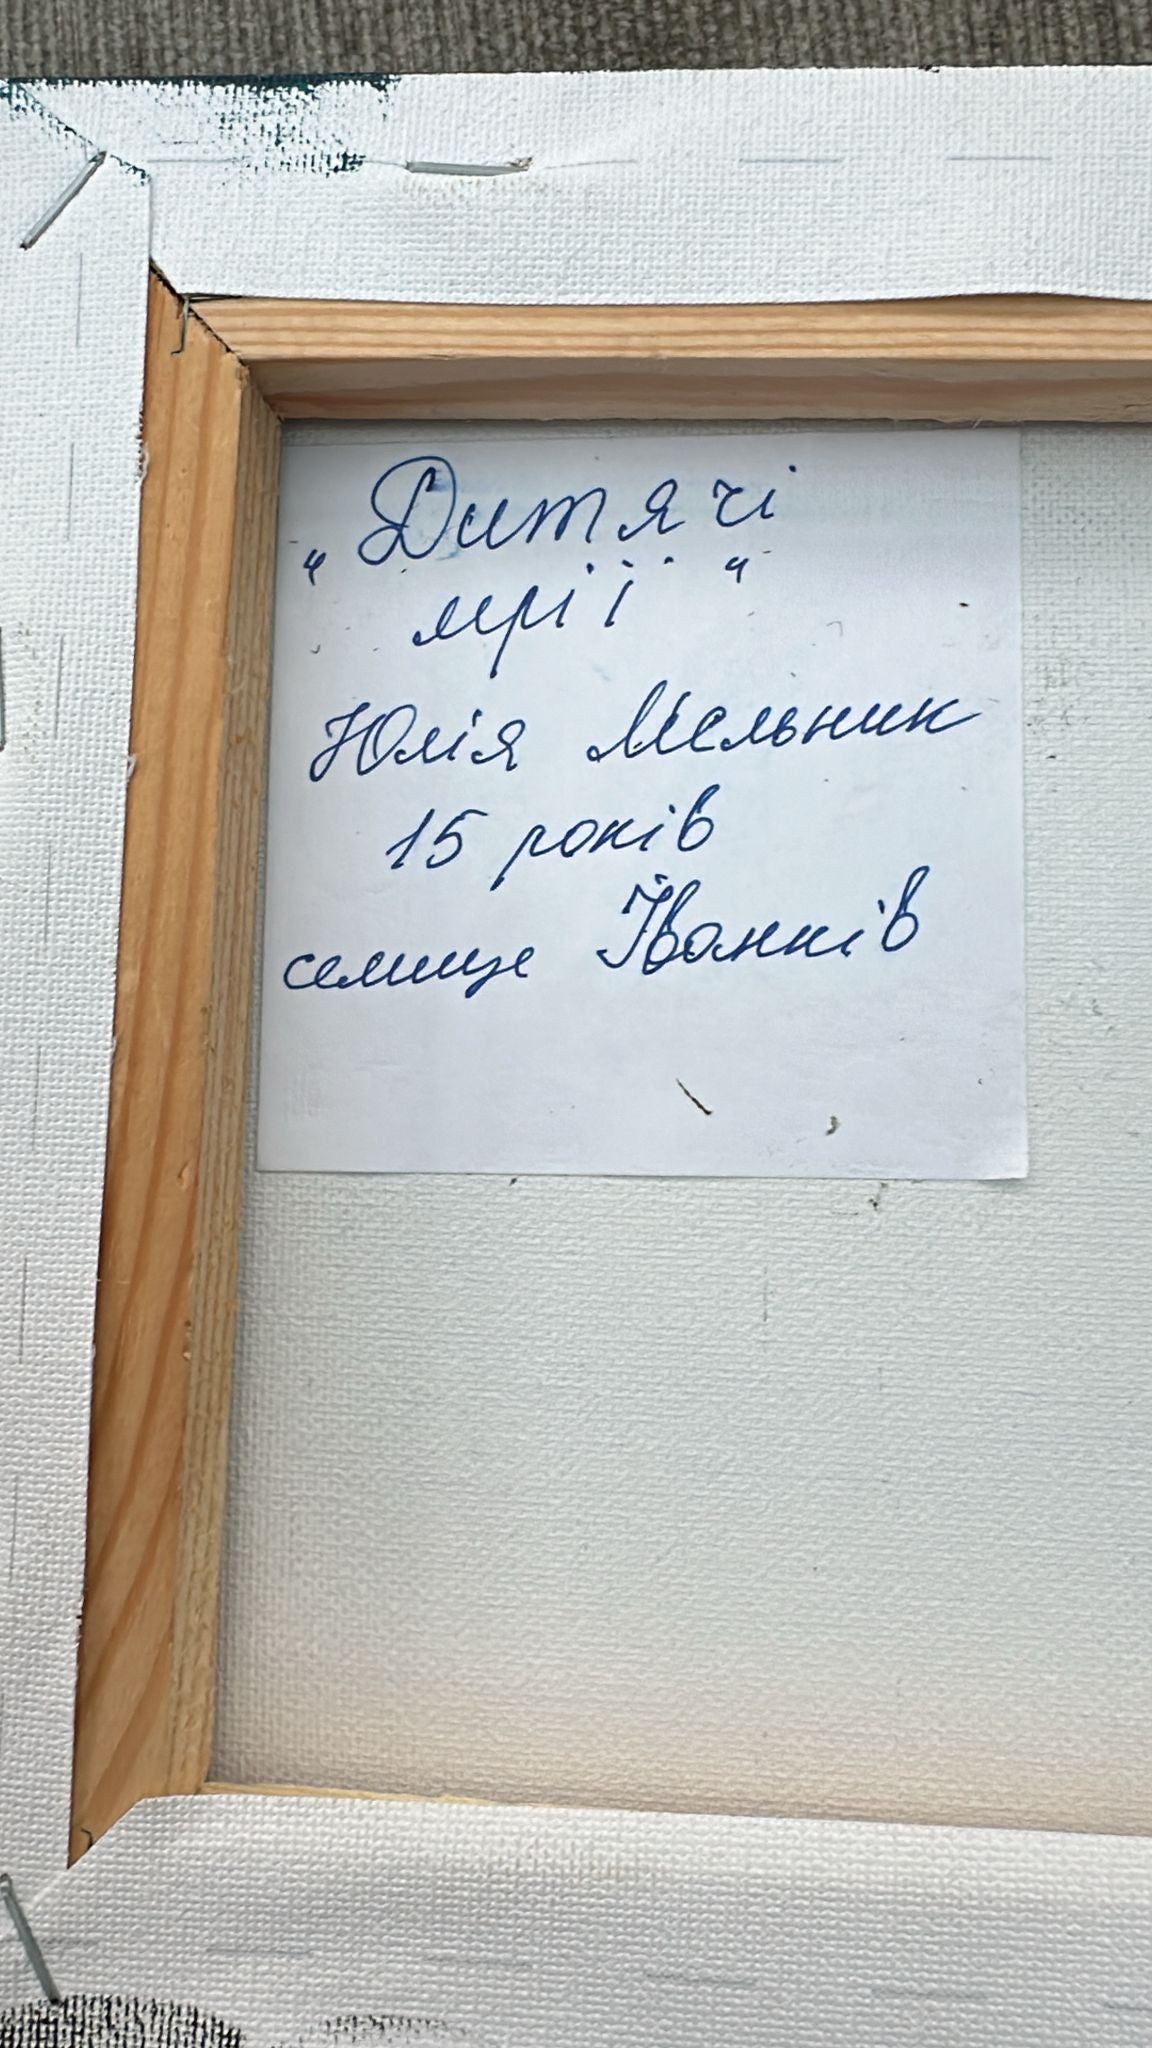 „Дитячі
мрії“
Юлія Мельник
15 років
селище Іванків